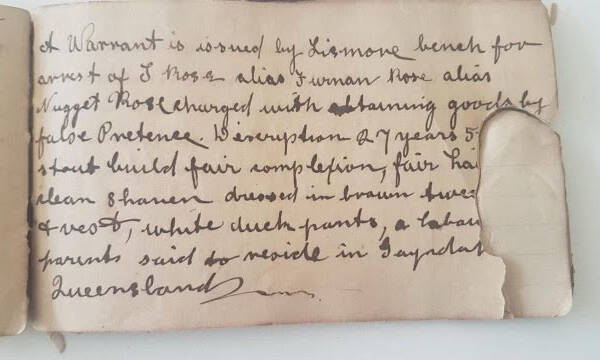 A Warrant is issued by Lismore bench for
arrest of J Rose alias Furman Rose alias
Nugget Rose charged with obtaining goods by
false Pretence. Discryption 27 years 5
stout build fair complexion, fair hai
clean shaven dressed in brown twee
& vest, white duck pants, a labou
parents said to reside in Gayndah
Queensland